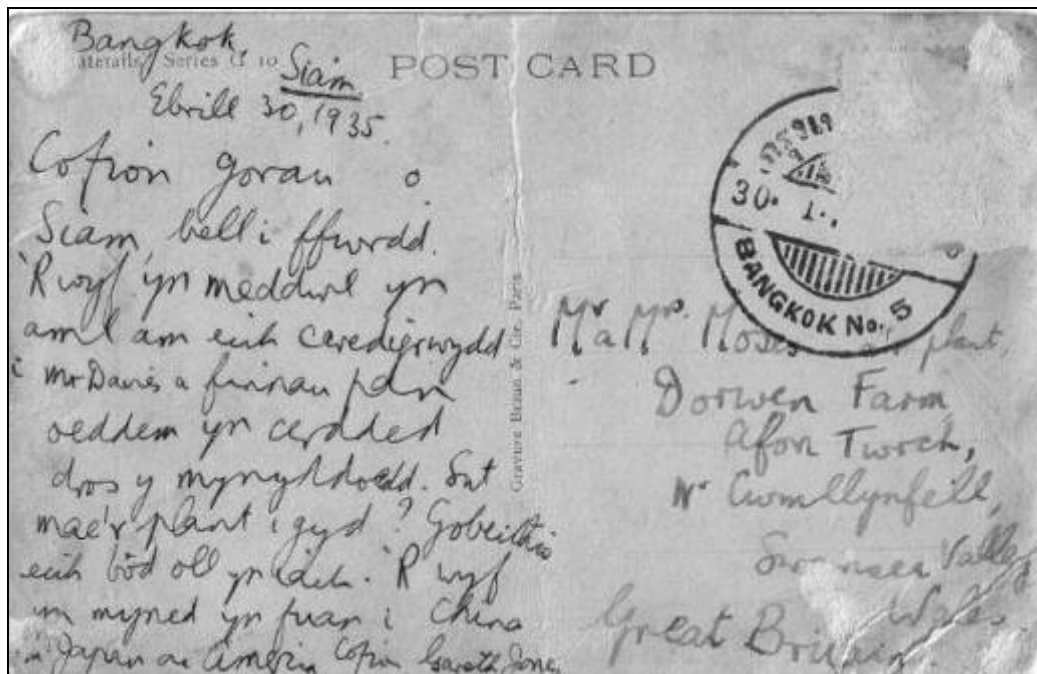 Bangkok,
Siam
Ebrill 30, 1935.
Series G 10
POST CARD
Cofion gorau o
Siam bell i ffwrdd.
'R wyf yn meddwl yn
aml am eich caredigrwydd
i Mr Davies a finnau pan
oeddem yn cerdded
dros y mynyddoedd. Sut
mae'r plant i gyd? Gobeithio
eich bôd oll yn iach. 'R wyf
yn myned yn fuan i China
Japan America Cofion Gareth Jones
Gravure Braun & Cie, Paris
30.
BANGKOK No. 5
Mr a Mrs. Moses plant,
Dorwen Farm
Afon Twrch,
Nr Cwmllynfell,
Swansea Valley
Wales.
Great Britain.